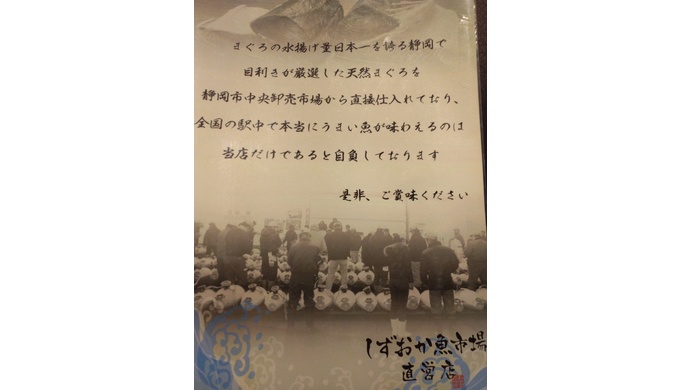 まぐろの水揚げ量日本一を誇る静岡で
目利きが厳選した天然まぐろを
静岡市中央卸売市場から直接仕入れており、
全国の駅中で本当にうまい魚が味わえるのは
当店だけであると自負しております
是非、ご賞味ください
しずおか魚市場
直営店